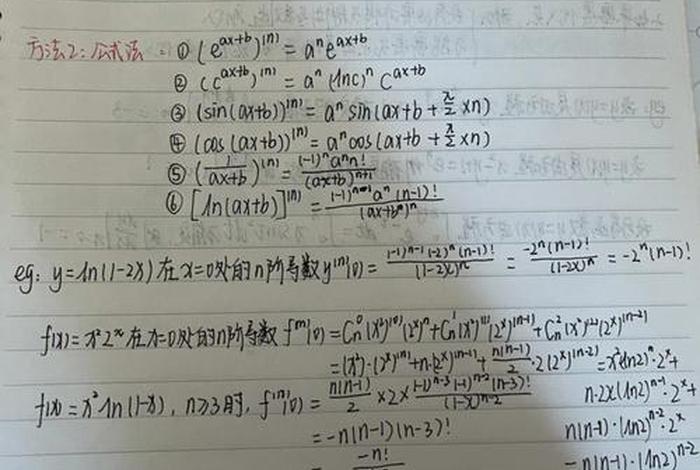 方法2:公式法:① (e^{ax+b})^{(n)} = a^n e^{ax+b}
② (c^{ax+b})^{(n)} = a^n (lnc)^n c^{ax+b}
③ (sin(ax+b))^{(n)} = a^n sin(ax+b+\frac{π}{2}×n)
④ (cos(ax+b))^{(n)} = a^n cos(ax+b+\frac{π}{2}×n)
⑤ (\frac{1}{ax+b})^{(n)} = \frac{(-1)^n a^n n!}{(ax+b)^{n+1}}
⑥ [ln(ax+b)]^{(n)} = \frac{(-1)^{n-1} a^n (n-1)!}{(ax+b)^n}
eg: y=ln(1-2x)在x=0处的n阶导数y^{(n)}(0) = \frac{(-1)^{n-1}(-2)^n(n-1)!}{(1-2x)^n} = \frac{-2^n(n-1)!}{(1-2x)^n} = -2^n(n-1)!
f(x)=x^2 2^x在x=0处的n阶导数 f^{(n)}(0) = C_n^0(x^2)^{(0)}(2^x)^{(n)}+C_n^1(x^2)^{(1)}(2^x)^{(n-1)}+C_n^2(x^2)^{(2)}(2^x)^{(n-2)}
=(x^2)·(2^x)^{(n)}+n·(2^x)^{(n-1)}+\frac{n(n-1)}{2}·2(2^x)^{(n-2)}=x^2(ln2)^n·2^x+
f(x)=x^2ln(1-x), n≥3时, f^{(n)}(0) = \frac{n(n-1)}{2}×2×\frac{(-1)^{n-3}(-1)^{n-2}(n-3)!}{(1-x)^{n-2}}
n·2x(ln2)^{n-1}·2^x+
=-n(n-1)(n-3)!
n(n-1)·(ln2)^{n-2}·2^x
-n!
=n(n-1)·(ln2)^{n-2}